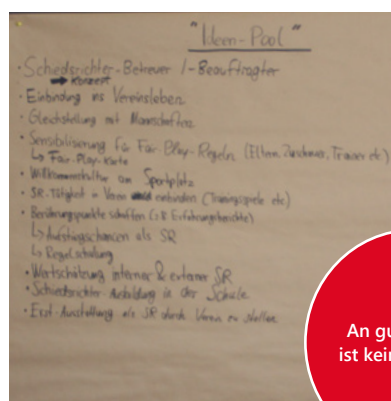 "Ideen-Pool"
· Schiedsrichter-Betreuer /-Beauftragter
➡ Konzept
· Einbindung ins Vereinsleben
· Gleichstellung mit Mannschaften
· Sensibilisierung für Fair-Play-Regeln (Eltern, Zuschauer, Trainer etc)
↳ Fair-Play-Karte
· Willkommenskultur am Sportplatz
· SR-Tätigkeit in Verein einbinden (Trainingsspiele etc)
· Berührungspunkte schaffen (z.B. Erfahrungsberichte)
↳ Aufstiegschancen als SR
↳ Regelschulung
· Wertschätzung interner & externer SR
· Schiedsrichter-Ausbildung in der Schule
· Erst-Ausstattung als SR durch Verein zu stellen
An gu
ist kein